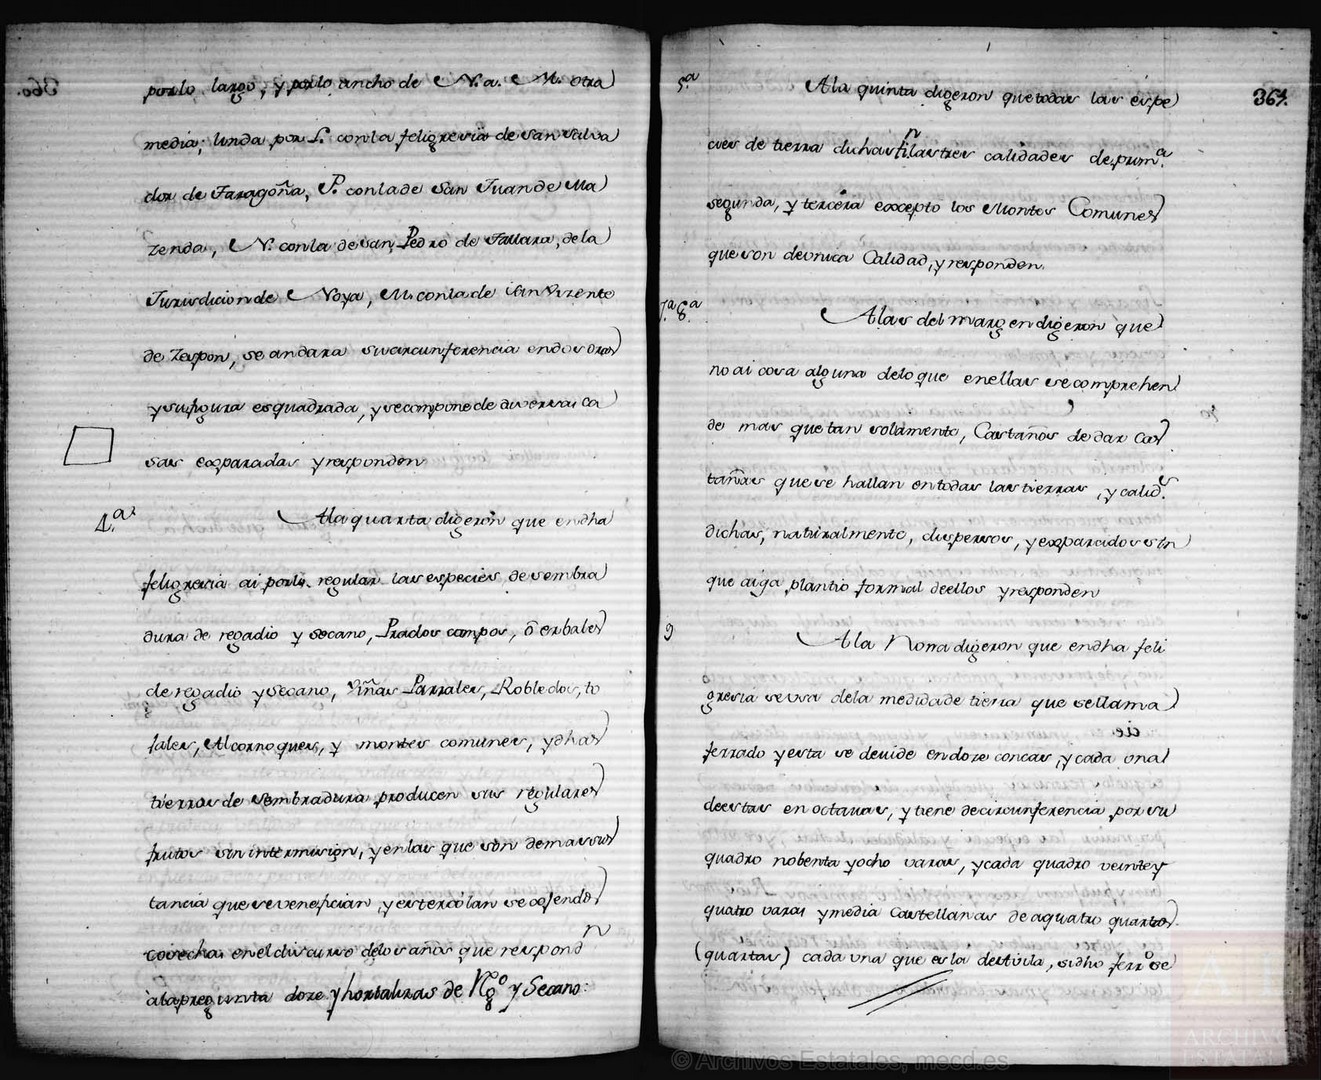 360.
porlo largo, y porlo ancho de N. a. M. otra
media; linda por L. conla feligresia de San Salva
dor de Taragoña, P. conlade San Juan de Ma
zenda, N. conla de san Pedro de Tallara, dela
Jurisdicion de Noya, M. conlade San Vizente
de Zespon, se andara su circunferencia endos oras
ysufigura esquadrada, ysecompone de diversas ca
sas esparadas yresponden
4.ª Ala quarta digeron que endha
feligresia ai porlo regular las especies de sembra
dura de regadio y secano, Prados campos, ô erbales
de regadio ysecano, Viñas Parrales, Robledos, to
jales, Alcornoques, y montes comunes, ydhas
tierras de sembradura producen sus regulares
frutos sin intermision, yenlas que son demassus
tancia que sevenefician, yestercolan se cojendos
cosechas enel discurso delos años que respondn
alapregunta doze y hortalizas de Rgo y Secano:
361.
5.ª Ala quinta digeron que todas las espe
cies de tierra dichas tilastres calidades de prima
segunda, y tercera excepto los Montes Comunes
que son deunica Calidad, yresponden.
7.ª 8.ª Alas del margen digeron que
no ai cosa alguna delo que enellas se comprehen
de mas que tan solamente, Castaños de dar cas
tañas que se hallan entodas las tierras, y calids
dichas, naturalmente, dispersos, yesparcidos sin
que aiga plantio formal deellos yresponden
9 Ala Nona digeron que endha feli
gresia seusa dela medidade tierra que se llama
ferrado yesta se devide endoze concas, ycada una
deestas en octavas, y tiene decircunferencia por su
quadro nobenta yocho varas, ycada quadro veintey
quatro varas ymedia Castellanas de aquatro quartos
(quartas) cada una que es la destila, sidho ferro se
© Archivos Estatales, mecd.es
ARCHIVO
ESTATAL